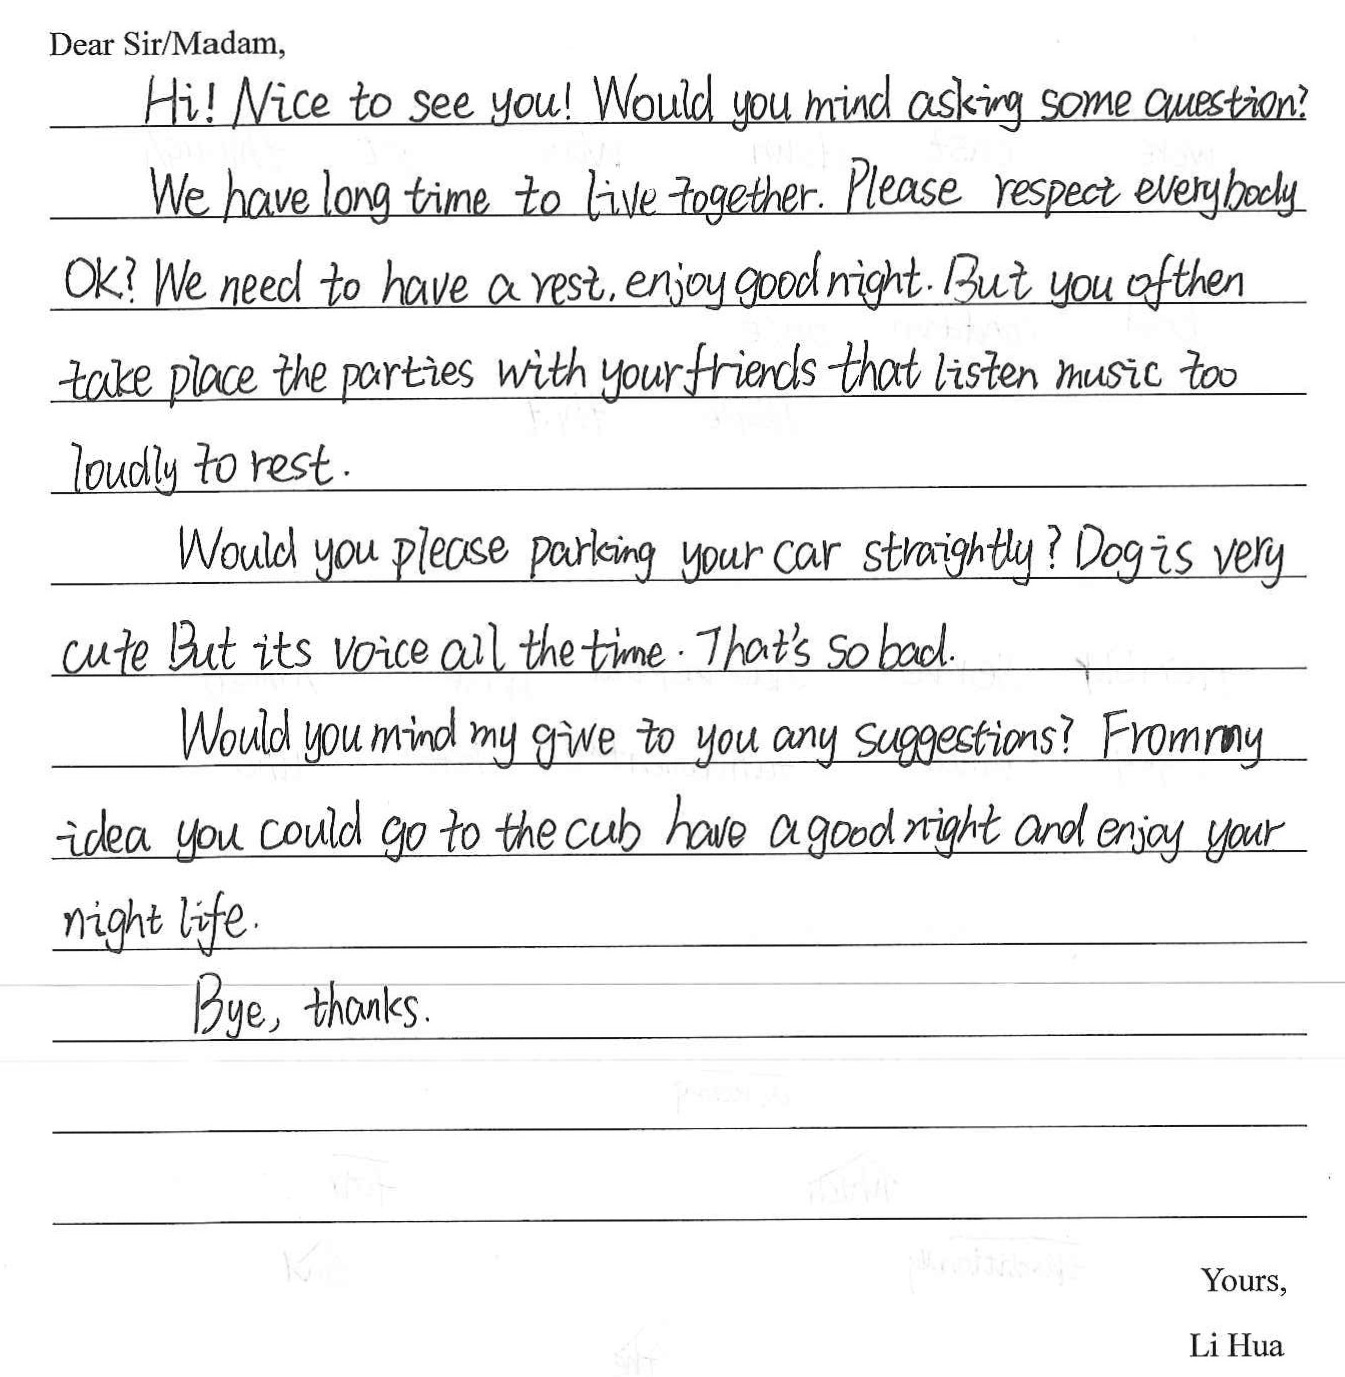 Dear Sir/Madam,
Hi! Nice to see you! Would you mind asking some question?
We have long time to live together. Please respect everybody
OK? We need to have a rest, enjoy good night. But you ofthen
take place the parties with your friends that listen music too
loudly to rest.
Would you please parking your car straightly? Dog is very
cute But its voice all the time. That's so bad.
Would you mind my give to you any suggestions? From my
idea you could go to the cub have a good night and enjoy your
night life.
Bye, thanks.
Yours,
Li Hua